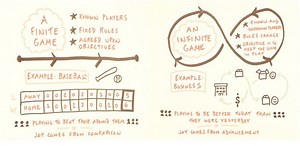 A
FINITE
GAME
★ KNOWN PLAYERS
★ FIXED RULES
★ AGREED UPON
OBJECTIVES
EXAMPLE: BASEBALL
AWAY
HOME
PLAYING TO BEAT THOSE AROUND THEM
JOY COMES FROM COMPARISON
AN
INFINITE
GAME
★ KNOWN AND
UNKNOWN PLAYERS
★ RULES CHANGE
★ OBJECTIVE IS TO
KEEP THE GAME
IN PLAY
EXAMPLE:
BUSINESS
PLAYING TO BE BETTER TODAY THAN
THEY WERE YESTERDAY
JOY COMES FROM ADVANCEMENT